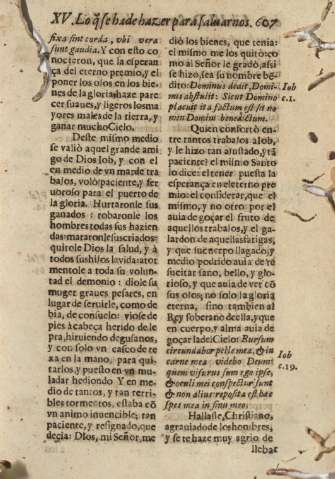 XV. Lo q̃ se ha de hazer para saluarnos. 607
fixa sint corda, vbi vera
sunt gaudia. Y con esto co
nocteron, que la esperan
ça del eterno premio, y el
poner los ojos en los bie-
nes de la gloria haze pare-
cer suaues, y ligeros los ma
yores males de la tierra, y
ganar mucho Cielo.
Deste mismo medio
se valiò aquel grande ami
go de Dios Iob, y con el
en medio de vn mar de tra
bajos, volò paciente, y fer
uoroso para el puerto de
la gloria. Hurtaronle sus
ganados: robaronle los
hombres todas sus hazien
das: mataronle sus criados:
quitole Dios la salud, y à
todos sus hijos la vida: ator
mentole a toda su volun-
tad el demonio: diole su
muger graues pesares, en
lugar de seruirle, como de-
bia, de consuelo: viose de
pies à cabeça herido de le
pra, hiruiendo de gusanos,
y con solo vn casco de te
xa en la mano, para qui-
tarlos, y puesto en vn mu-
ladar hediondo. Y en me-
dio de tantos, y tan terri-
bles tormentos, estaba cõ
vn animo inuencible, tan
paciente, y resignado, que
decia: Dios, mi Señor, me
diò los bienes, que tenia:
el mismo me los quitò: co
mo al Señor le gradò, assi
se hizo, sea su nombre be-
dito: Dominus dedit, Domi-
nus abstulit: Sicut Domino
placuit ita factum est: sit no
men Domini benedictum.
Iob
c.1.
Quien confortò en-
tre tantos trabajos a Iob,
y le hizo tan alustado, y tã
paciente? el mismo Santo
lo dice: el tener puesta la
esperança en el eterno pre
mio: el considerar, que el
mismo, y no otro por el
auia de goçar el fruto de
aquellos trabajos, y el ga-
lardon de aquellas fatigas,
y que su cuerpo llagado, y
medio podrido auia de re
sucitar sano, bello, y glo-
rioso, y que auia de ver cõ
sus ojos, no solo la gloria
eterna, sino tambien al
Rey soberano de ella, y que
en cuerpo, y alma auia de
goçar la de el Cielo: Rursum
circundabor pelle mea, & in
carne mea videbo Deum:
quem visurus sum ego ipse,
& oculi mei conspecturi sunt
& non alius: reposita est hæc
spes mea in sinu meo.
Iob
c.19.
Hallaste, Christiano,
agrauiado de los hombres,
y se te haze muy agrio de
llebar